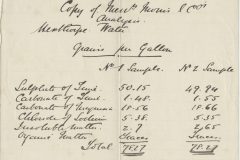 Copy of Messrs Morris & Coors
Analysis.
Menthorpe Water
Grains per Gallon
No 1 Sample. No 2 Sample.
Sulphate of Lime 50.15 49.84
Carbonate of Lime 1.48 1.55
Carbonate of Magnesia 18.56 18.56
Chloride of Sodium 5.38 5.35
Insoluble matter 2.7 2.65
Organic Matter Traces Traces
Total 78.27